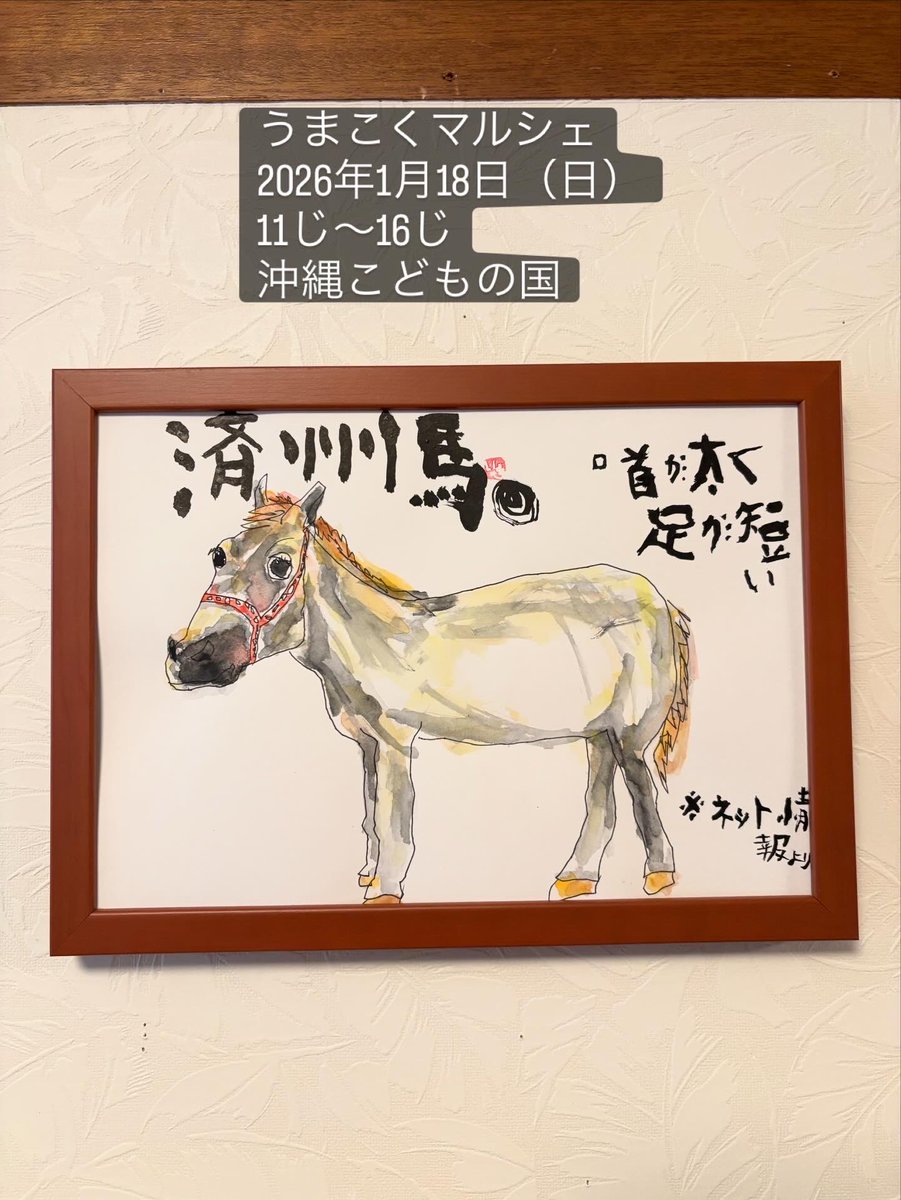 うまこくマルシェ
2026年1月18日（日）
11じ〜16じ
沖縄こどもの国
済州馬。
首が太く
足が短い
※ネット情
報より